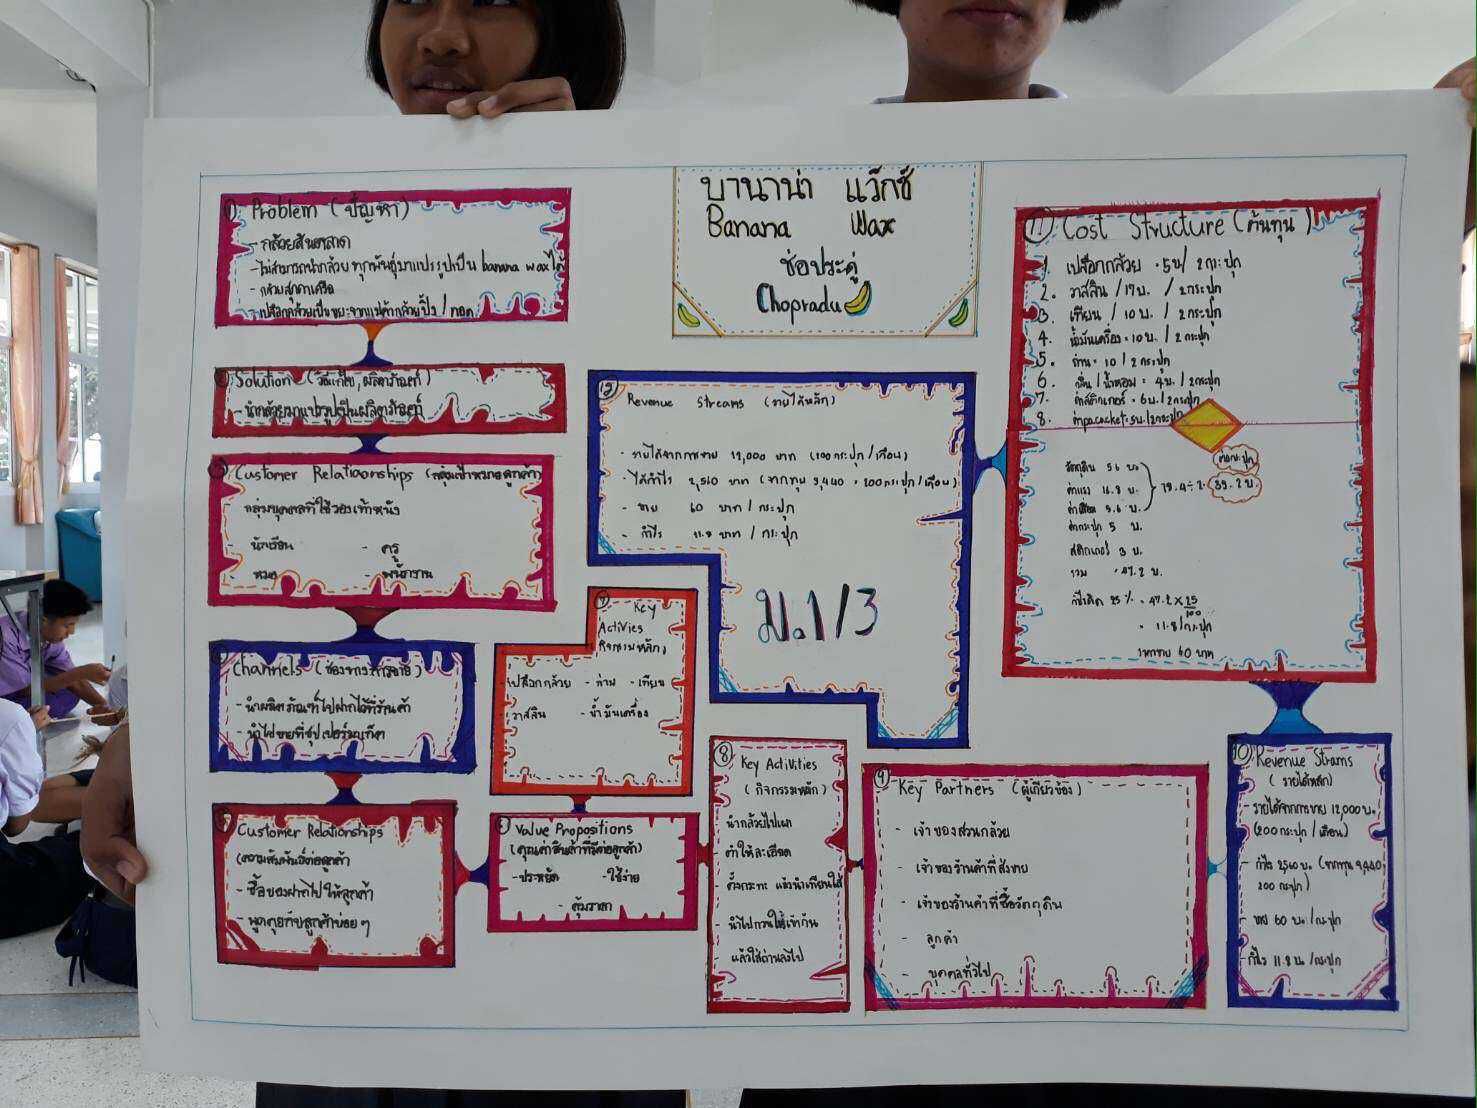 บานาน่า แว๊กซ์
Banana Wax
ช่อประดู่
Chopradu
1 Problem (ปัญหา)
- กล้วยล้นตลาด
- ไม่สามารถนำกล้วยทุกพันธุ์มาแปรรูปเป็น banana wax ได้
- กล้วยสุกคาเครือ
- เปลือกกล้วยเป็นขยะจากแม่ค้ากล้วยปิ้ง / ทอด
Solution (วิธีแก้ไข, ผลิตภัณฑ์)
- นำกล้วยมาแปรรูปเป็นผลิตภัณฑ์
Customer Relationships (กลุ่มเป้าหมายลูกค้า)
- กลุ่มบุคคลที่ใช้รองเท้าหนัง
- นักเรียน - ครู
- หมอ - พนักงาน
Channels (ช่องทางการขาย)
- นำผลิตภัณฑ์ไปฝากไว้ที่ร้านค้า
- นำไปขายที่ซุปเปอร์มาเก็ต
Customer Relationships
(ความสัมพันธ์ต่อลูกค้า)
- ซื้อของฝากไปให้ลูกค้า
- พูดคุยกับลูกค้าบ่อยๆ
Value Propositions
(คุณค่าสินค้าที่มีต่อลูกค้า)
- ประหยัด - ใช้ง่าย
- คุ้มราคา
7 Key
Activies
(กิจกรรมหลัก)
เปลือกกล้วย - ถ่าน - เทียน
วาสลีน - น้ำมันเครื่อง
8 Key Activities
(กิจกรรมหลัก)
นำกล้วยไปเผา
ตำให้ละเอียด
ตั้งกระทะ แล้วนำเทียนใส่
- นำไปกวนให้เข้ากัน
แล้วใส่ถ่านลงไป
9 Key Partners (ผู้เกี่ยวข้อง)
- เจ้าของสวนกล้วย
- เจ้าของร้านค้าที่ส่งขาย
- เจ้าของร้านค้าที่ซื้อวัตถุดิบ
- ลูกค้า
- บุคคลทั่วไป
10 Revenue Strams
(รายได้หลัก)
- รายได้จากการขาย 12,000 บ.
(200 กระปุก / เดือน)
- กำไร 2,560 บ. (จากทุน 9,440
200 กระปุก)
- ขาย 60 บ. / กระปุก
- กำไร 11.8 บ. / กระปุก
11 Cost Structure (ต้นทุน)
1. เปลือกกล้วย . 5 บ / 2 กระปุก
2. วาสลีน / 17 บ. / 2 กระปุก
3. เทียน / 10 บ. / 2 กระปุก
4. น้ำมันเครื่อง = 10 บ. / 2 กระปุก
5. ถ่าน = 10 / 2 กระปุก
6. กลิ่น / น้ำหอม = 4 บ. / 2 กระปุก
7. ค่าสติกเกอร์ = 6 บ. / 2 กระปุก
8. ค่า pacacket = 5 บ. / 2 กระปุก
วัตถุดิบ 56 บ.
ค่าแรง 16.8 บ.
5.6 บ.
78.4 ÷ 2 = 39.2 บ.
ต่อกระปุก
ค่ากระปุก 5 บ.
สติกเกอร์ 3 บ.
รวม = 47.2 บ.
กำไรคิด 25 % = 47.2 × 25/100
= 11.8 / กระปุก
ราคาขาย 60 บาท
12 Revenue Streams (รายได้หลัก)
- รายได้จากการขาย 12,000 บาท (200 กระปุก / เดือน)
- ได้กำไร 2,560 บาท (จากทุน 9,440 = 200 กระปุก / เดือน)
- ขาย 60 บาท / กระปุก
- กำไร 11.8 บาท / กระปุก
ม.1/3